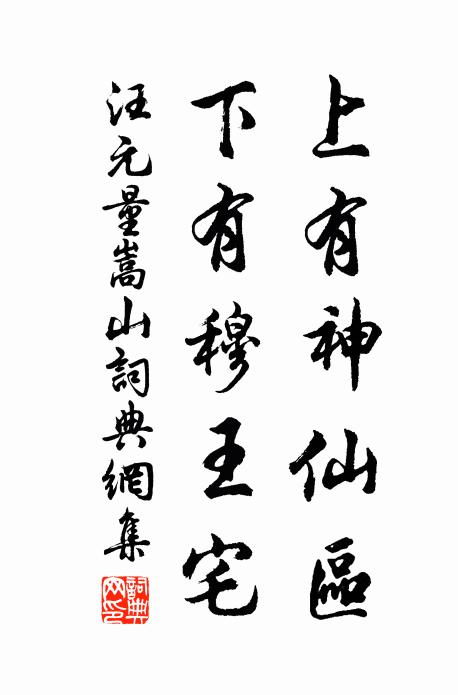 上有神仙區
下有穆王宅
汪元量嵩山詞典網集
詞典網印